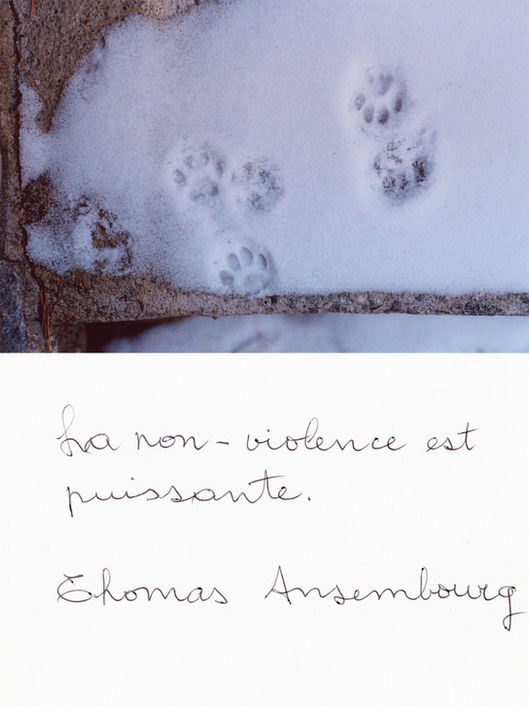 La non-violence est
puissante.
Thomas Ansembourg